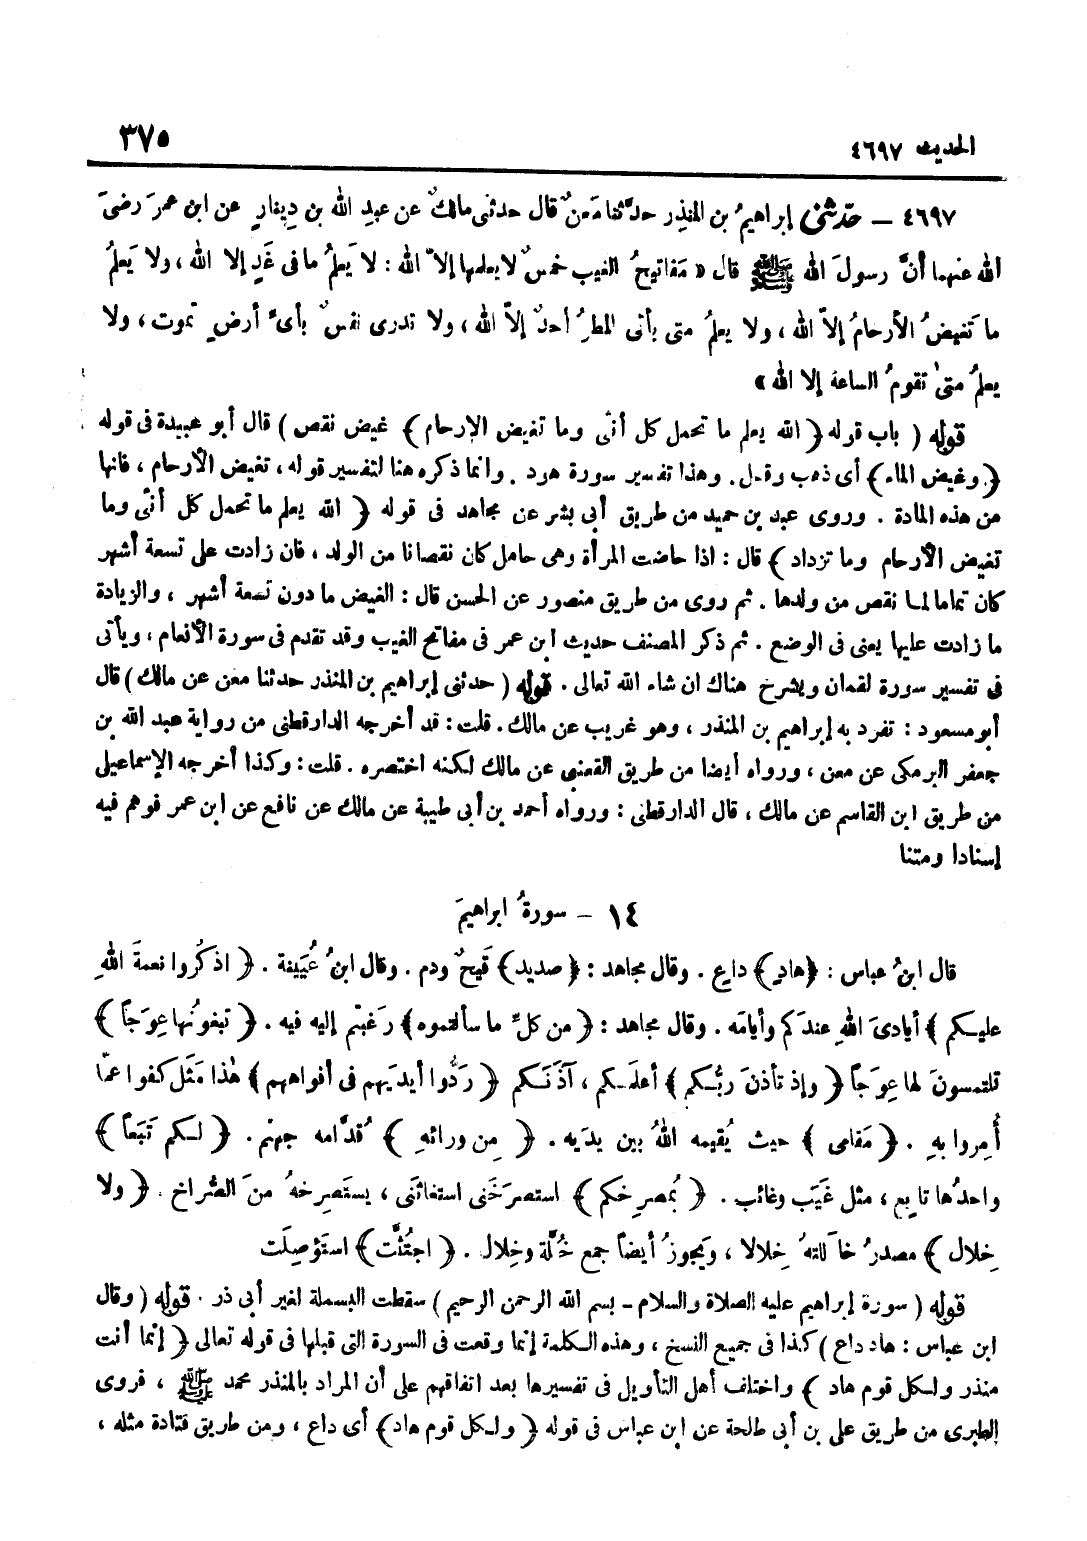 الحديث ٤٦٩٧
٣٧٥
٤٦٩٧ – حدّثنى إبراهيمُ بن المنذِر حدَّثنا مَعنٌ قال حدثنى مالكٌ عن عبدِ الله بن دِينارٍ عن ابن عمرَ رضىَ
الله عنهما أنَّ رسولَ الله ﷺ قال « مَفاتيحُ الغيب خمسٌ لايعلمها إلاّ الله : لا يَعلمُ ما فى غَدٍ إلا الله ، ولا يَعلمُ
ما تَغيضُ الأرحامُ إلاّ الله ، ولا يعلمُ متى يأتى المطرُ أحدٌ إلاّ الله ، ولا تدرى نفسٌ بأىِّ أرضٍ تموت ، ولا
يعلمُ متىٰ تقومُ الساعة إلا الله »
قوله ( باب قوله ﴿ الله يعلم ما تحمل كل أنثى وما تغيض الارحام ﴾ غيض نقص ) قال أبو عبيدة فى قوله
﴿ وغيض الماء ﴾ أى ذهب وقل . وهذا تفسير سورة هود . وانما ذكره هنا لتفسير قوله ، تغيض الأرحام ، فانها
من هذه المادة . وروى عبد بن حميد من طريق أبى بشر عن مجاهد فى قوله ﴿ الله يعلم ما تحمل كل أنثى وما
تغيض الأرحام وما تزداد ﴾ قال : اذا حاضت المرأة وهى حامل كان نقصانا من الولد ، فان زادت على تسعة أشهر
كان تماما لما نقص من ولدها . ثم روى من طريق منصور عن الحسن قال : الغيض ما دون تسعة أشهر ، والزيادة
ما زادت عليها يعنى فى الوضع . ثم ذكر المصنف حديث ابن عمر فى مفاتح الغيب وقد تقدم فى سورة الأنعام ، ويأتى
فى تفسير سورة لقمان ويشرح هناك ان شاء الله تعالى . قوله ( حدثنى إبراهيم بن المنذر حدثنا معن عن مالك ) قال
أبو مسعود : تفرد به إبراهيم بن المنذر ، وهو غريب عن مالك . قلت : قد أخرجه الدارقطنى من رواية عبد الله بن
جعفر البرمكى عن معن ، ورواه أيضا من طريق القعنبى عن مالك لكنه اختصره . قلت : وكذا أخرجه الإسماعيلى
من طريق ابن القاسم عن مالك ، قال الدارقطنى : ورواه أحمد بن أبى طيبة عن مالك عن نافع عن ابن عمر فوهم فيه
إسنادا ومتنا
١٤ – سورةُ ابراهيمَ
قال ابنُ عباس : ﴿ هادٍ ﴾ داعٍ . وقال مجاهد : ﴿ صديد ﴾ قَيحٌ ودم . وقال ابنُ عُيَينة . ﴿ اذكُروا نعمةَ اللهِ
عليكم ﴾ أيادىَ اللهِ عندَكم وأيامَه . وقال مجاهد : ﴿ من كلِّ ما سألتموه ﴾ رَغبتم إليه فيه . ﴿ تبغونُها عِوَجاً ﴾
تلتمسونَ لها عِوَجاً ﴿ وإذ تأذنَ ربُّكم ﴾ أعلمكم ، آذَنَكم ﴿ رَدُّوا أيديَهم فى أفواههم ﴾ هٰذا مَثَل كفوا عمّا
أُمِروا بهِ . ﴿ مَقامى ﴾ حيث يُقيمه اللهُ بين يدَيه . ﴿ مِن ورائهِ ﴾ قُدَّامه جهنم . ﴿ لكم تَبَعاً ﴾
واحدُها تابِع ، مثل غَيَب وغائب . ﴿ بمُصرِخكم ﴾ استصرَخَنى استغاثَنى ، يستَصرِخهُ منَ الصُّراخ . ﴿ ولا
خِلال ﴾ مصدرُ خالَلتهُ خِلالا ، ويَجوزُ أيضاً جمع خُلَّة وخِلال . ﴿ اجتُثَّت ﴾ استُؤصِلَت
قوله ( سورة إبراهيم عليه الصلاة والسلام – بسم الله الرحمن الرحيم ) سقطت البسملة لغير أبى ذر . قوله ( وقال
ابن عباس : هاد داع ) كذا فى جميع النسخ ، وهذه الكلمة إنما وقعت فى السورة التى قبلها فى قوله تعالى ﴿ إنما أنت
منذر ولكل قوم هاد ﴾ واختلف أهل التأويل فى تفسيرها بعد اتفاقهم على أن المراد بالمنذر محمد ﷺ ، فروى
الطبرى من طريق على بن أبى طلحة عن ابن عباس فى قوله ﴿ ولكل قوم هاد ﴾ أى داع ، ومن طريق قتادة مثله ،